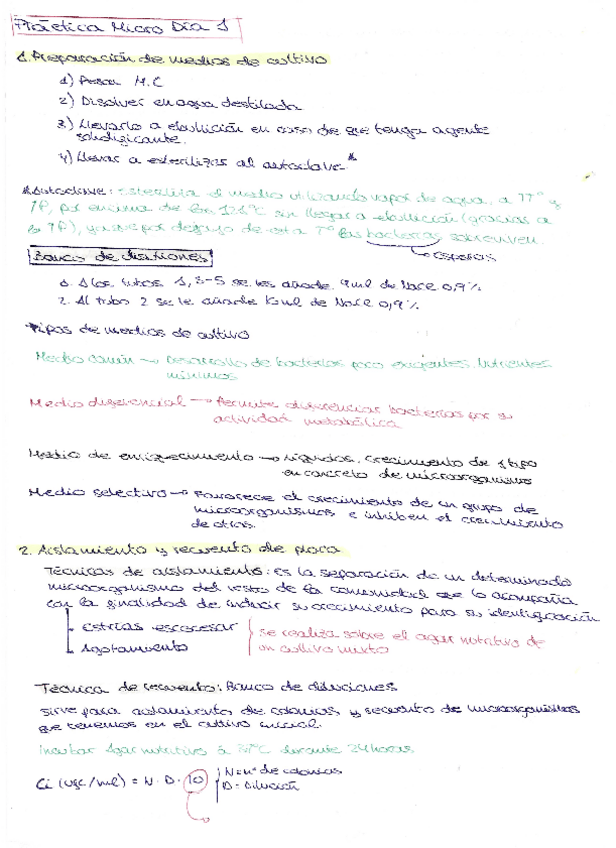 Práctica Micro Día 1
1. Preparación de medios de cultivo
1) Pesar M.C
2) Disolver en agua destilada
3) Llevarlo a ebullición en caso de que tenga agente
solidificante.
4) Llevar a esterilizar al autoclave*
*Autoclave: esteriliza el medio utilizando vapor de agua, a ↑Tº y
↑P, por encima de los 121ºC sin llegar a ebullición (gracias a
la ↑P), ya que por debajo de esta Tº las bacterias sobreviven.
esporas
Banco de diluciones
1. A los tubos 1, 3-5 se les añade 9ml de NaCl 0,9%
2. Al tubo 2 se le añade ml de NaCl 0,9%
Tipos de medios de cultivo
Medio común → Desarrollo de bacterias poco exigentes. Nutrientes
mínimos
Medio diferencial → Permite diferenciar bacterias por su
actividad metabólica
Medio de enriquecimiento → líquidos. crecimiento de 1 tipo
en concreto de microorganismo
Medio selectivo → Favorece el crecimiento de un grupo de
microorganismos e inhiben el crecimiento
de otros.
2. Aislamiento y recuento de placa
Técnicas de aislamiento: es la separación de un determinado
microorganismo del resto de la comunidad que lo acompaña
con la finalidad de inducir su crecimiento para su identificación
estrías escocesas
Agotamiento
se realiza sobre el agar nutritivo de
un cultivo mixto
Técnica de recuento: Banco de diluciones
sirve para aislamiento de colonias y recuento de microorganismos
que tenemos en el cultivo inicial.
Incubar Agar nutritivo a 37ºC durante 24 horas
Ci (ufc/ml) = N · D · 10
N = nº de colonias
D = Dilución